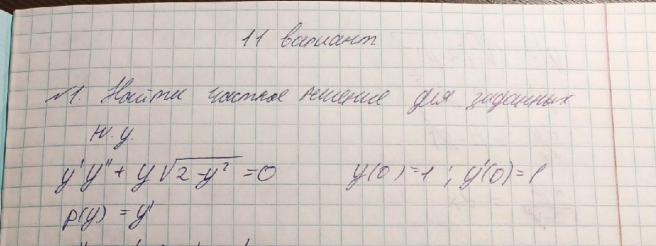 11 вариант
№1. Найти частное решение для заданных
н.у.
y'y" + y√(2-y²) = 0 y(0)=1; y'(0)=1
p(y) = y'